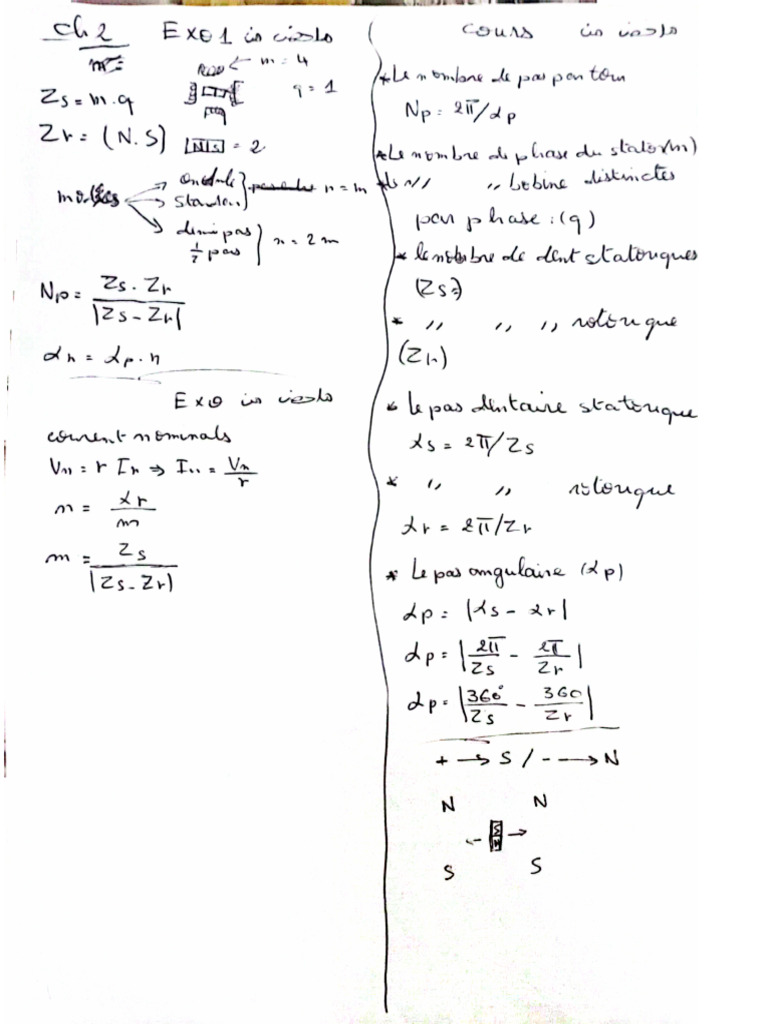 Ch 2
Exo 1
m = 4
q = 1
Zs = m.q
Zr = (N.S)
[N|S] = 2
modes
ondulé
Standard
n = m
demi pas
1/2 pas
n = 2m
Np = Zs . Zr / |Zs - Zr|
αn = αp . n
Exo
courent nominals
Vn = r In ⇒ In = Vn/r
m = αr/m
m = Zs / |Zs - Zr|
cours
* Le nombre de pas par tour
Np = 2π/αp
* Le nombre de phase du stator (m)
* Le // // bobine distinctes
par phase : (q)
* le nombre de dent statoriques
(Zs)
* // // // rotorique
(Zr)
* le pas dentaire statorique
αs = 2π/Zs
* // // rotorique
αr = 2π/Zr
* Le pas angulaire (αp)
αp = |αs - αr|
αp = |2π/Zs - 2π/Zr|
αp = |360°/Zs - 360/Zr|
+ → S / - → N
N N
S
N
S S